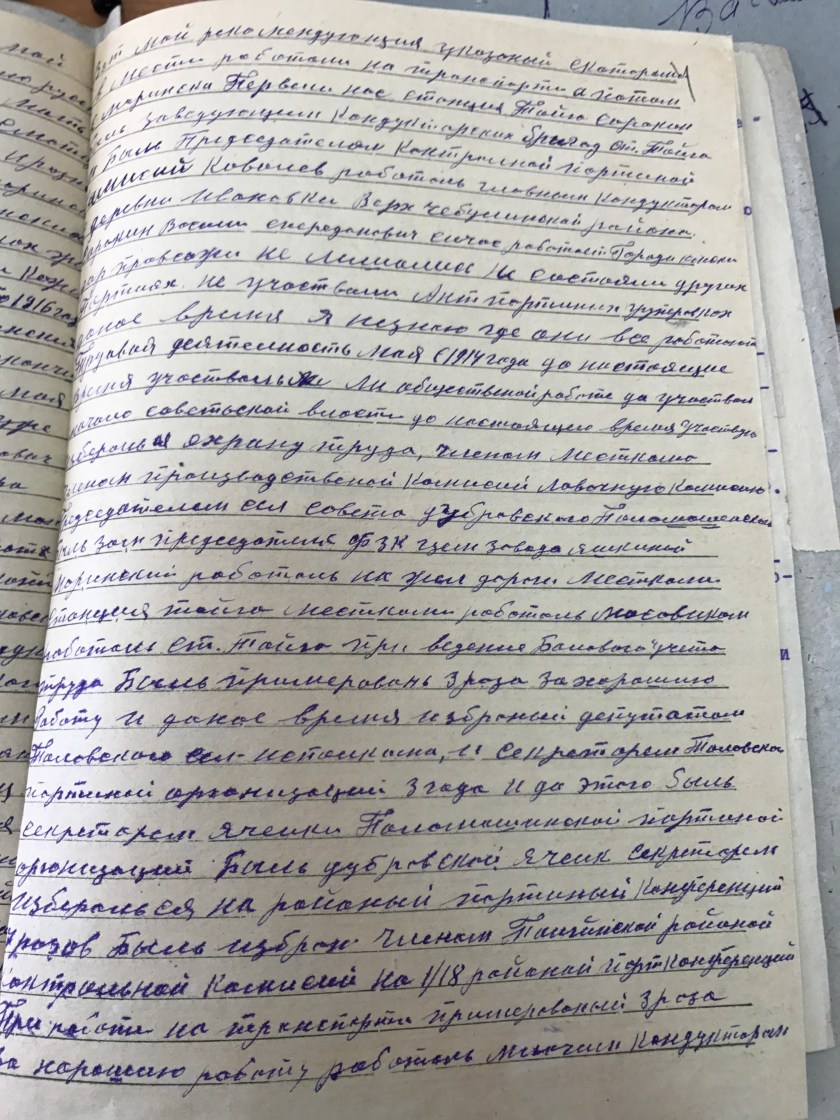 вот мой рекомендующия указаный скоторами
в месте работали на транспорти а потом
маринска Первеле нас станция Тайга Сорокин
быль заведующем Кондукторских бригад ст. Тайга
и Быль Председателем Контролной партиной
камисий Ковалев работаль главным Кондуктором
деревни Ивановки Верх Чебулинской района.
Сорокин Васили сичас работает Города
прав не лишались не состояли других
партиях. не участвали Антпартиных групировках
даное время Я незнаю где они все работают
Трудавая деятелность мая с 1914 года до настоящие
время участваль Ли общественой работе да участвал
начало советьской власти до настоящего время участвую
избералься охрану труда, членом месткома
членом производственой Комисий Лавочную Комисию
Председателем сел совета дубровского Поломошенской
быль Зам председателя ФЗК цем завода яшкиной
маринский работаль на жел дороги месткоми
станция тайга месткоми работаль масовиком
работаль ст. Тайга при ведение Балового учета
труда Быль примерован 3 роза за хорошию
работу и даное время избраный депутатам
Таловского сел-исполкома, и секретарем Таловской
партиной организаций 3 года и до этого быль
секретарем ячейки Поломошинской партиной
организаций Быль дубровской ячеик секретарем
избералься на районый партиный Конференций
разов Быль избран членом Тайгинской районой
контрольной Камисий на 1/18 районой партконференций
При работе на транспорти примерованый 3 роза
за хорошию работу работаль Кондукторам